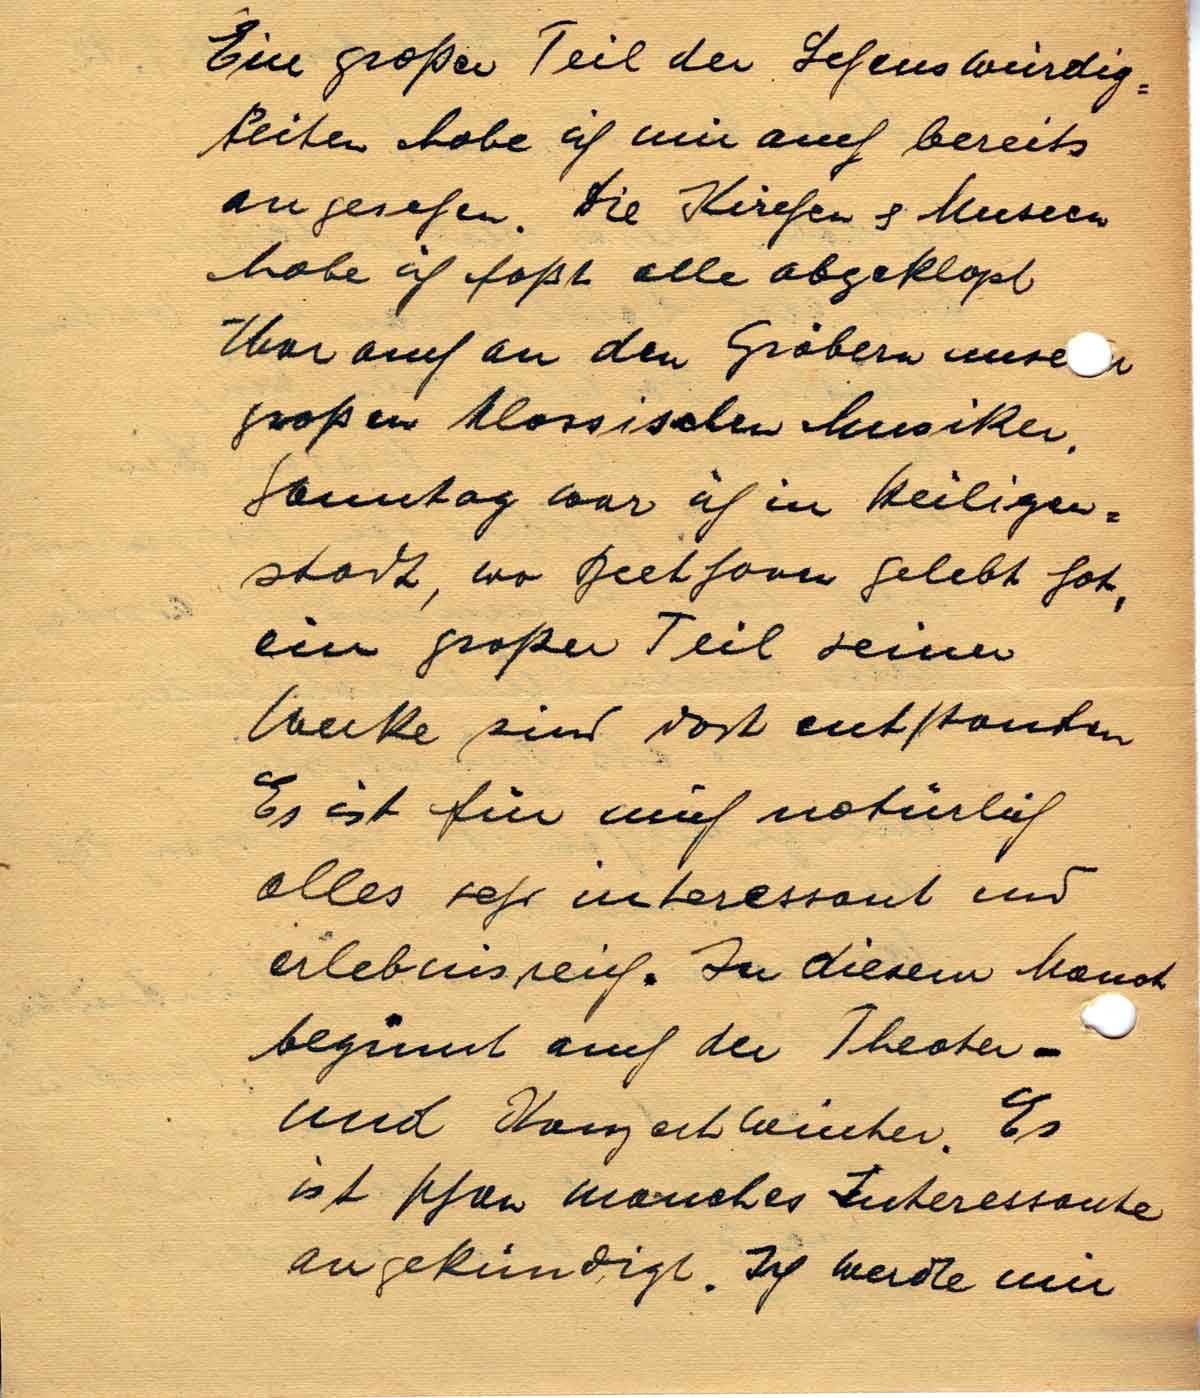 Ein großer Teil der Sehenswürdig=
keiten habe ich mir auch bereits
angesehen. Die Kirchen & Museen
habe ich faßt alle abgeklopt
War auch an den Gräbern unserer
großen klassischen Musiker.
Sonntag war ich in Heiligen=
stadt, wo Beethoven gelebt hat,
ein großer Teil seiner
Werke sind dort entstanden
Es ist für mich natürlich
alles sehr interessant und
erlebnisreich. In diesem Monat
beginnt auch der Theater-
und Konzertwinter. Es
ist schon manches Interessante
angekündigt. Ich werde mir